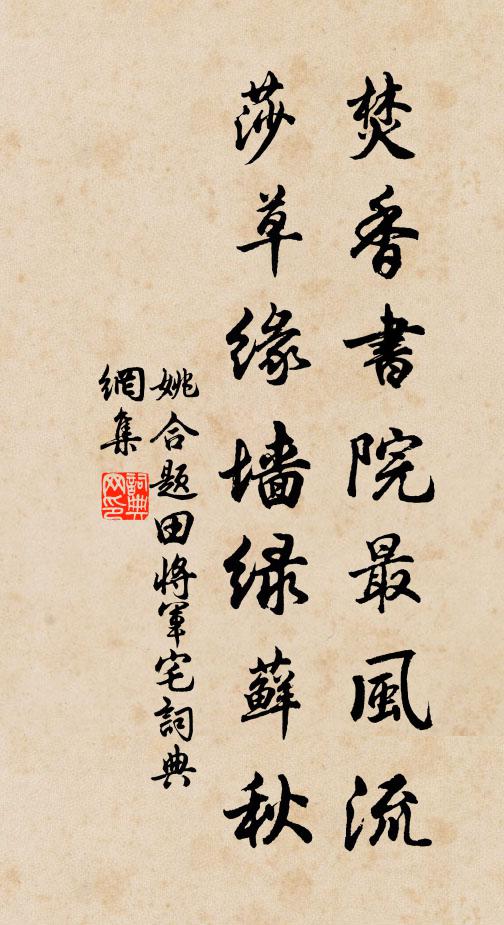 焚香書院最風流
莎草緣墻綠蘚秋
姚合題田將軍宅詞典
網集
詞典
网印